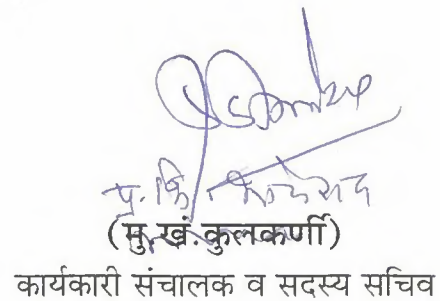 प्र. कि.
(मु.खं.कुलकर्णी)
कार्यकारी संचालक व सदस्य सचिव